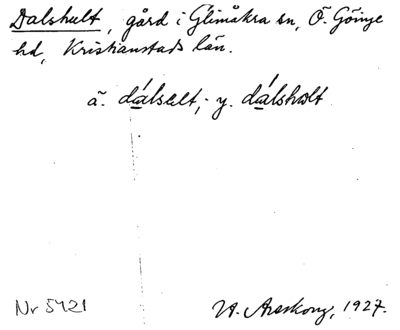 Dalshult, gård i Glimåkra sn, Ö. Göinge
hd, Kristianstads län.
ä. dálselt; y. dálsholt
Nr 5421
W. Areskog, 1927.